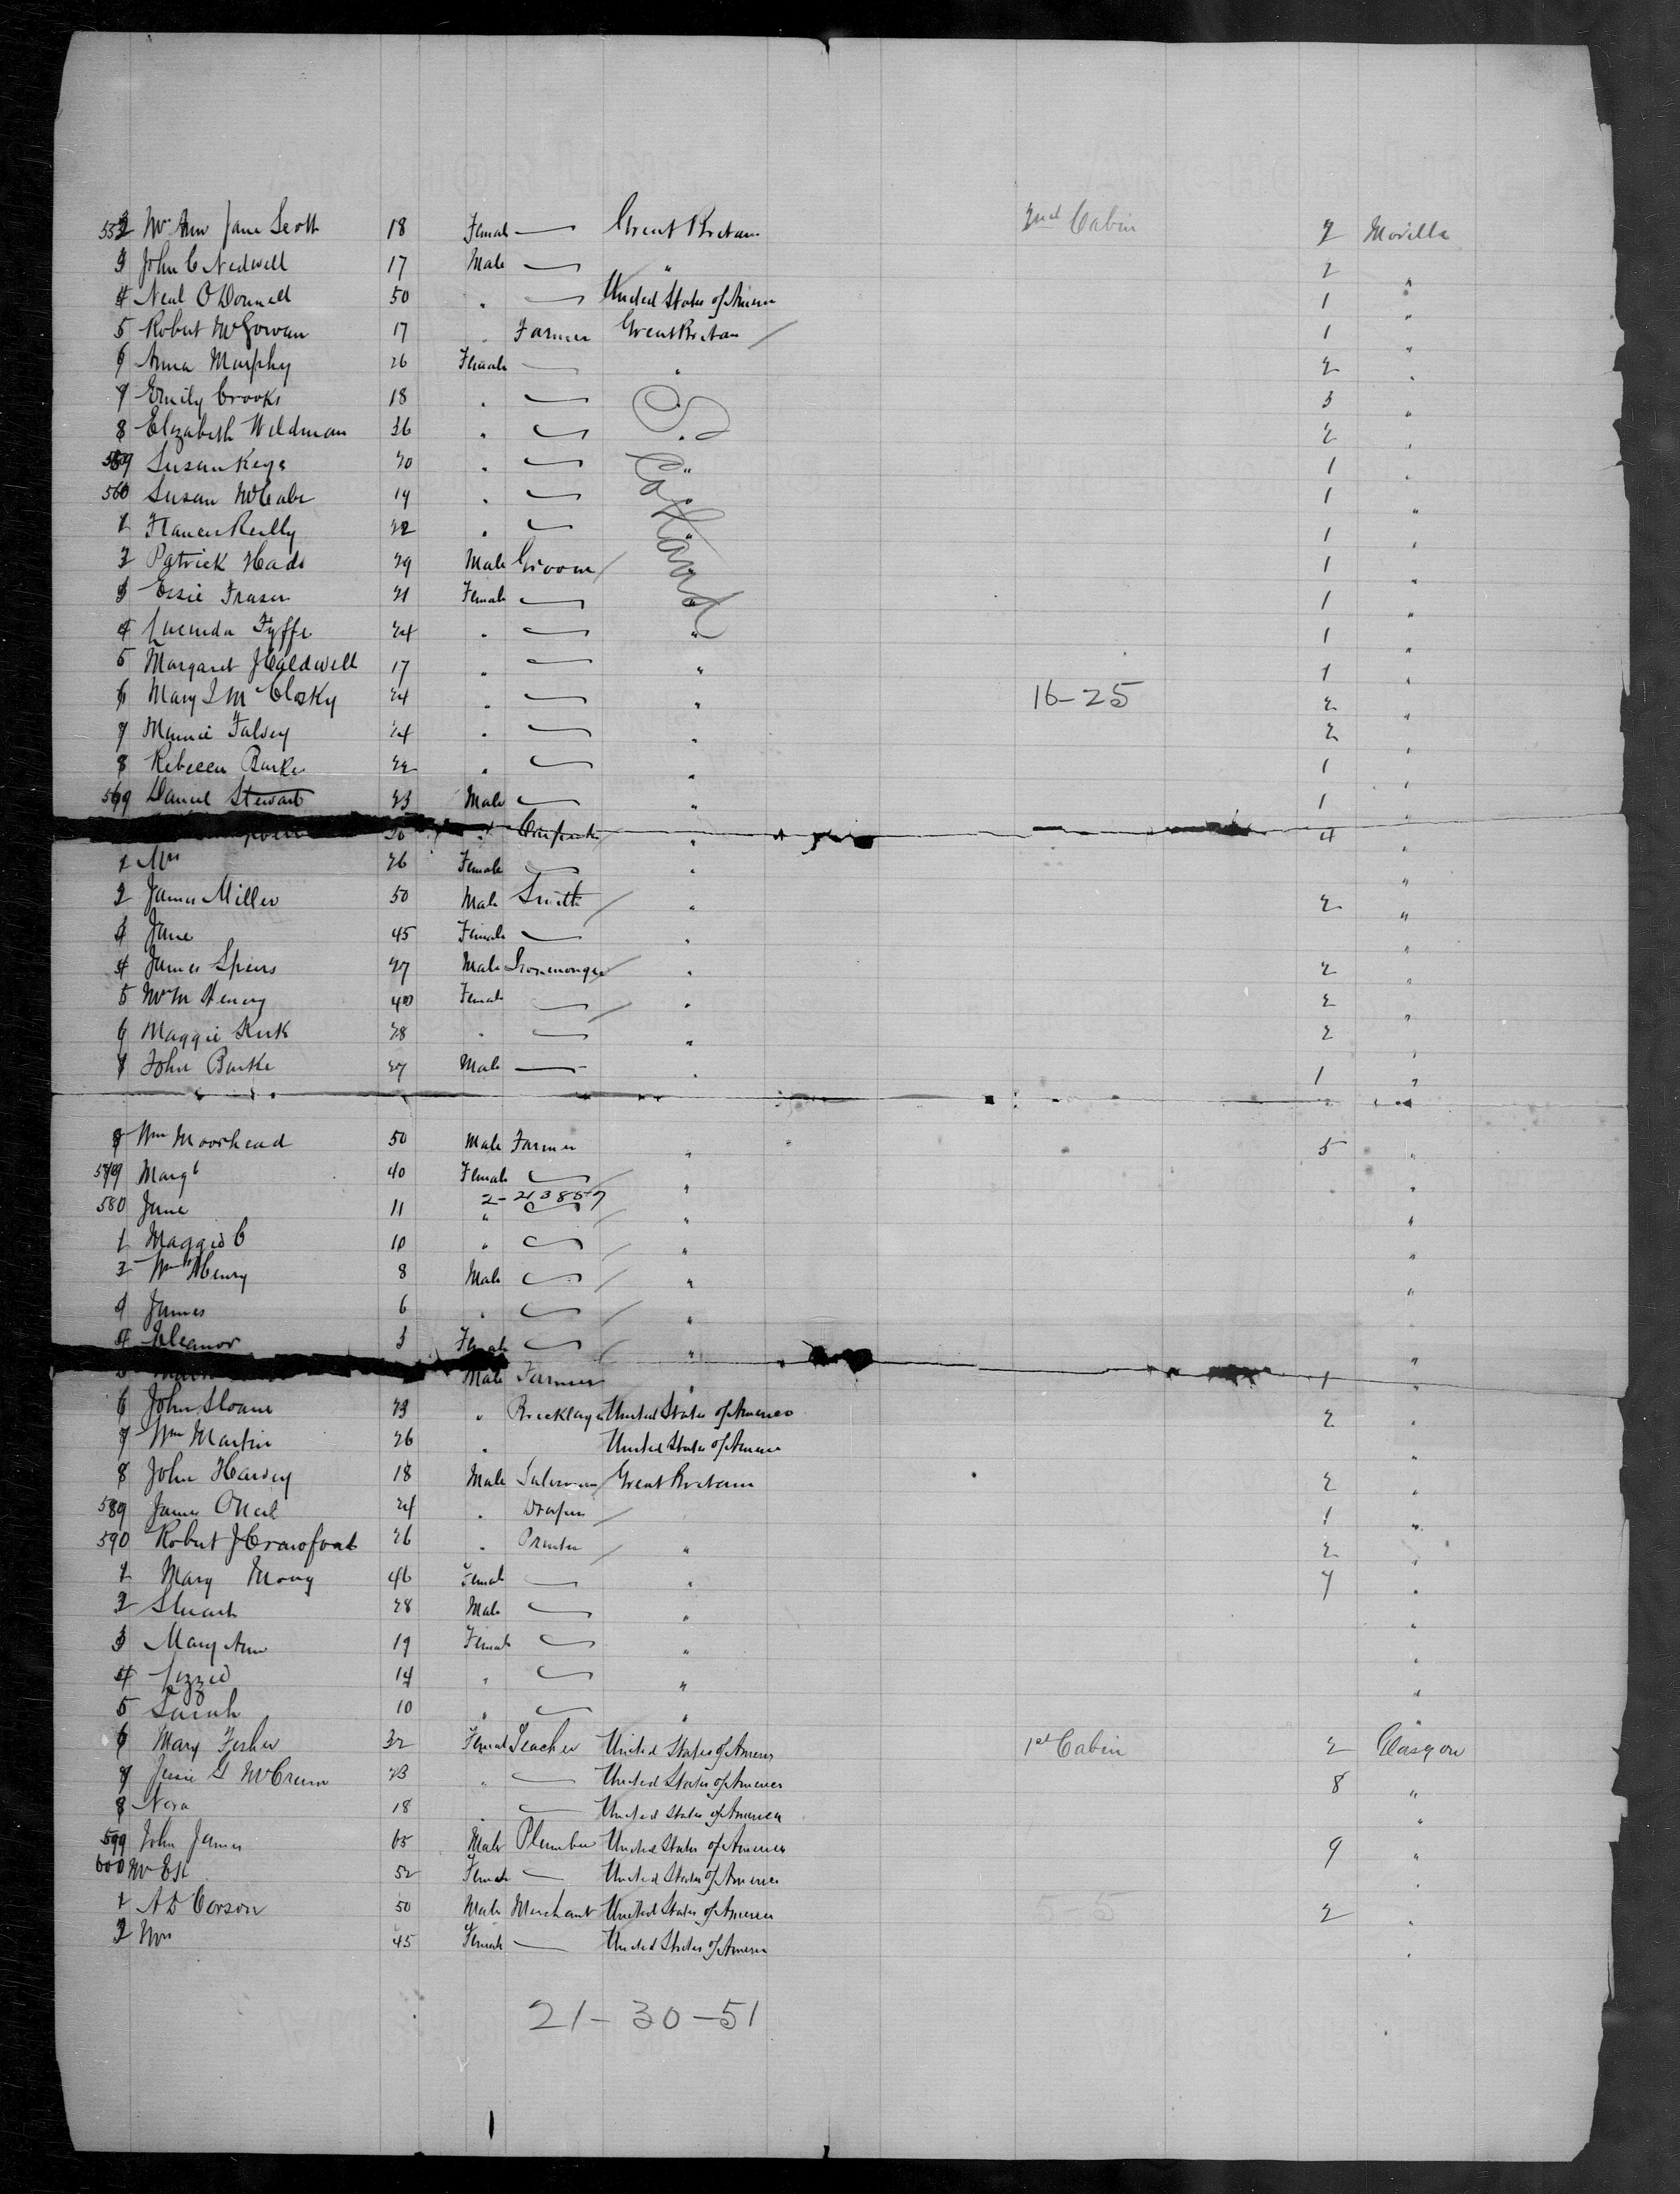 552 Mrs Ann Jane Scott 18 Female — Great Britain 2nd Cabin 2 Moville
3 John C Nedwell 17 Male — " 2 "
4 Neal O'Donnell 50 " — United States of America 1 "
5 Robert McGowan 17 " Farmer Great Britain 1 "
6 Anna Murphy 26 Female — " 2 "
7 Emily Crooks 18 " — " 3 "
8 Elizabeth Wildman 36 " — " 2 "
559 Susan Keys 20 " — " 1 "
560 Susan McCabe 19 " — " 1 "
1 Frances Reilly 22 " — " 1 "
2 Patrick Hade 29 Male Groom " 1 "
3 Essie Fraser 21 Female — " 1 "
4 Lucinda Fyffe 24 " — " 1 "
5 Margaret J Caldwell 17 " — " 1 "
6 Mary J McClosky 24 " — " 16-25 2 "
7 Minnie Falvey 24 " — " 2 "
8 Rebecca Burke 22 " — " 1 "
569 Daniel Stewart 23 Male — " 1 "
" " 4 "
1 Mrs 26 Female — " "
2 James Miller 50 Male Smith " 2 "
3 Jane 45 Female — " "
4 James Spiers 27 Male Ironmonger " 2 "
5 Mrs M Henry 40 Female — " 2 "
6 Maggie Kirk 28 " — " 2 "
7 John Burke 27 Male — " 1 "
8 Wm Moorhead 50 Male Farmer " 5 "
579 Margt 40 Female — " "
2-213857
580 Jane 11 " — " "
1 Maggie C 10 " — " "
2 Wm Henry 8 Male — " "
3 James 6 " — "
4 Eleanor 3 Female — " "
5 Male Farmer " 1 "
6 John Sloane 23 " Bricklayer United States of America 2 "
7 Wm Martin 26 " United States of America "
8 John Harvey 18 Male Salesman Great Britain 2 "
589 James O'Neil 24 " Draper 1 "
590 Robert J Crawford 26 " Printer " 2 "
1 Mary Mony 46 Female — " 7 "
2 Stuart 28 Male — " "
3 Mary Ann 19 Female — " "
4 Lizzie 14 " — " "
5 Sarah 10 " — " "
6 Mary Fisher 32 Female Teacher United States of America 1st Cabin 2 Glasgow
7 Jessie G McCrum 23 " — United States of America 8 "
8 Nora 18 " — United States of America "
599 John James 65 Male Plumber United States of America 9 "
600 Mrs 52 Female — United States of America "
1 A D Corson 50 Male Merchant United States of America 2 "
2 Mrs 45 Female — United States of America "
21-30-51